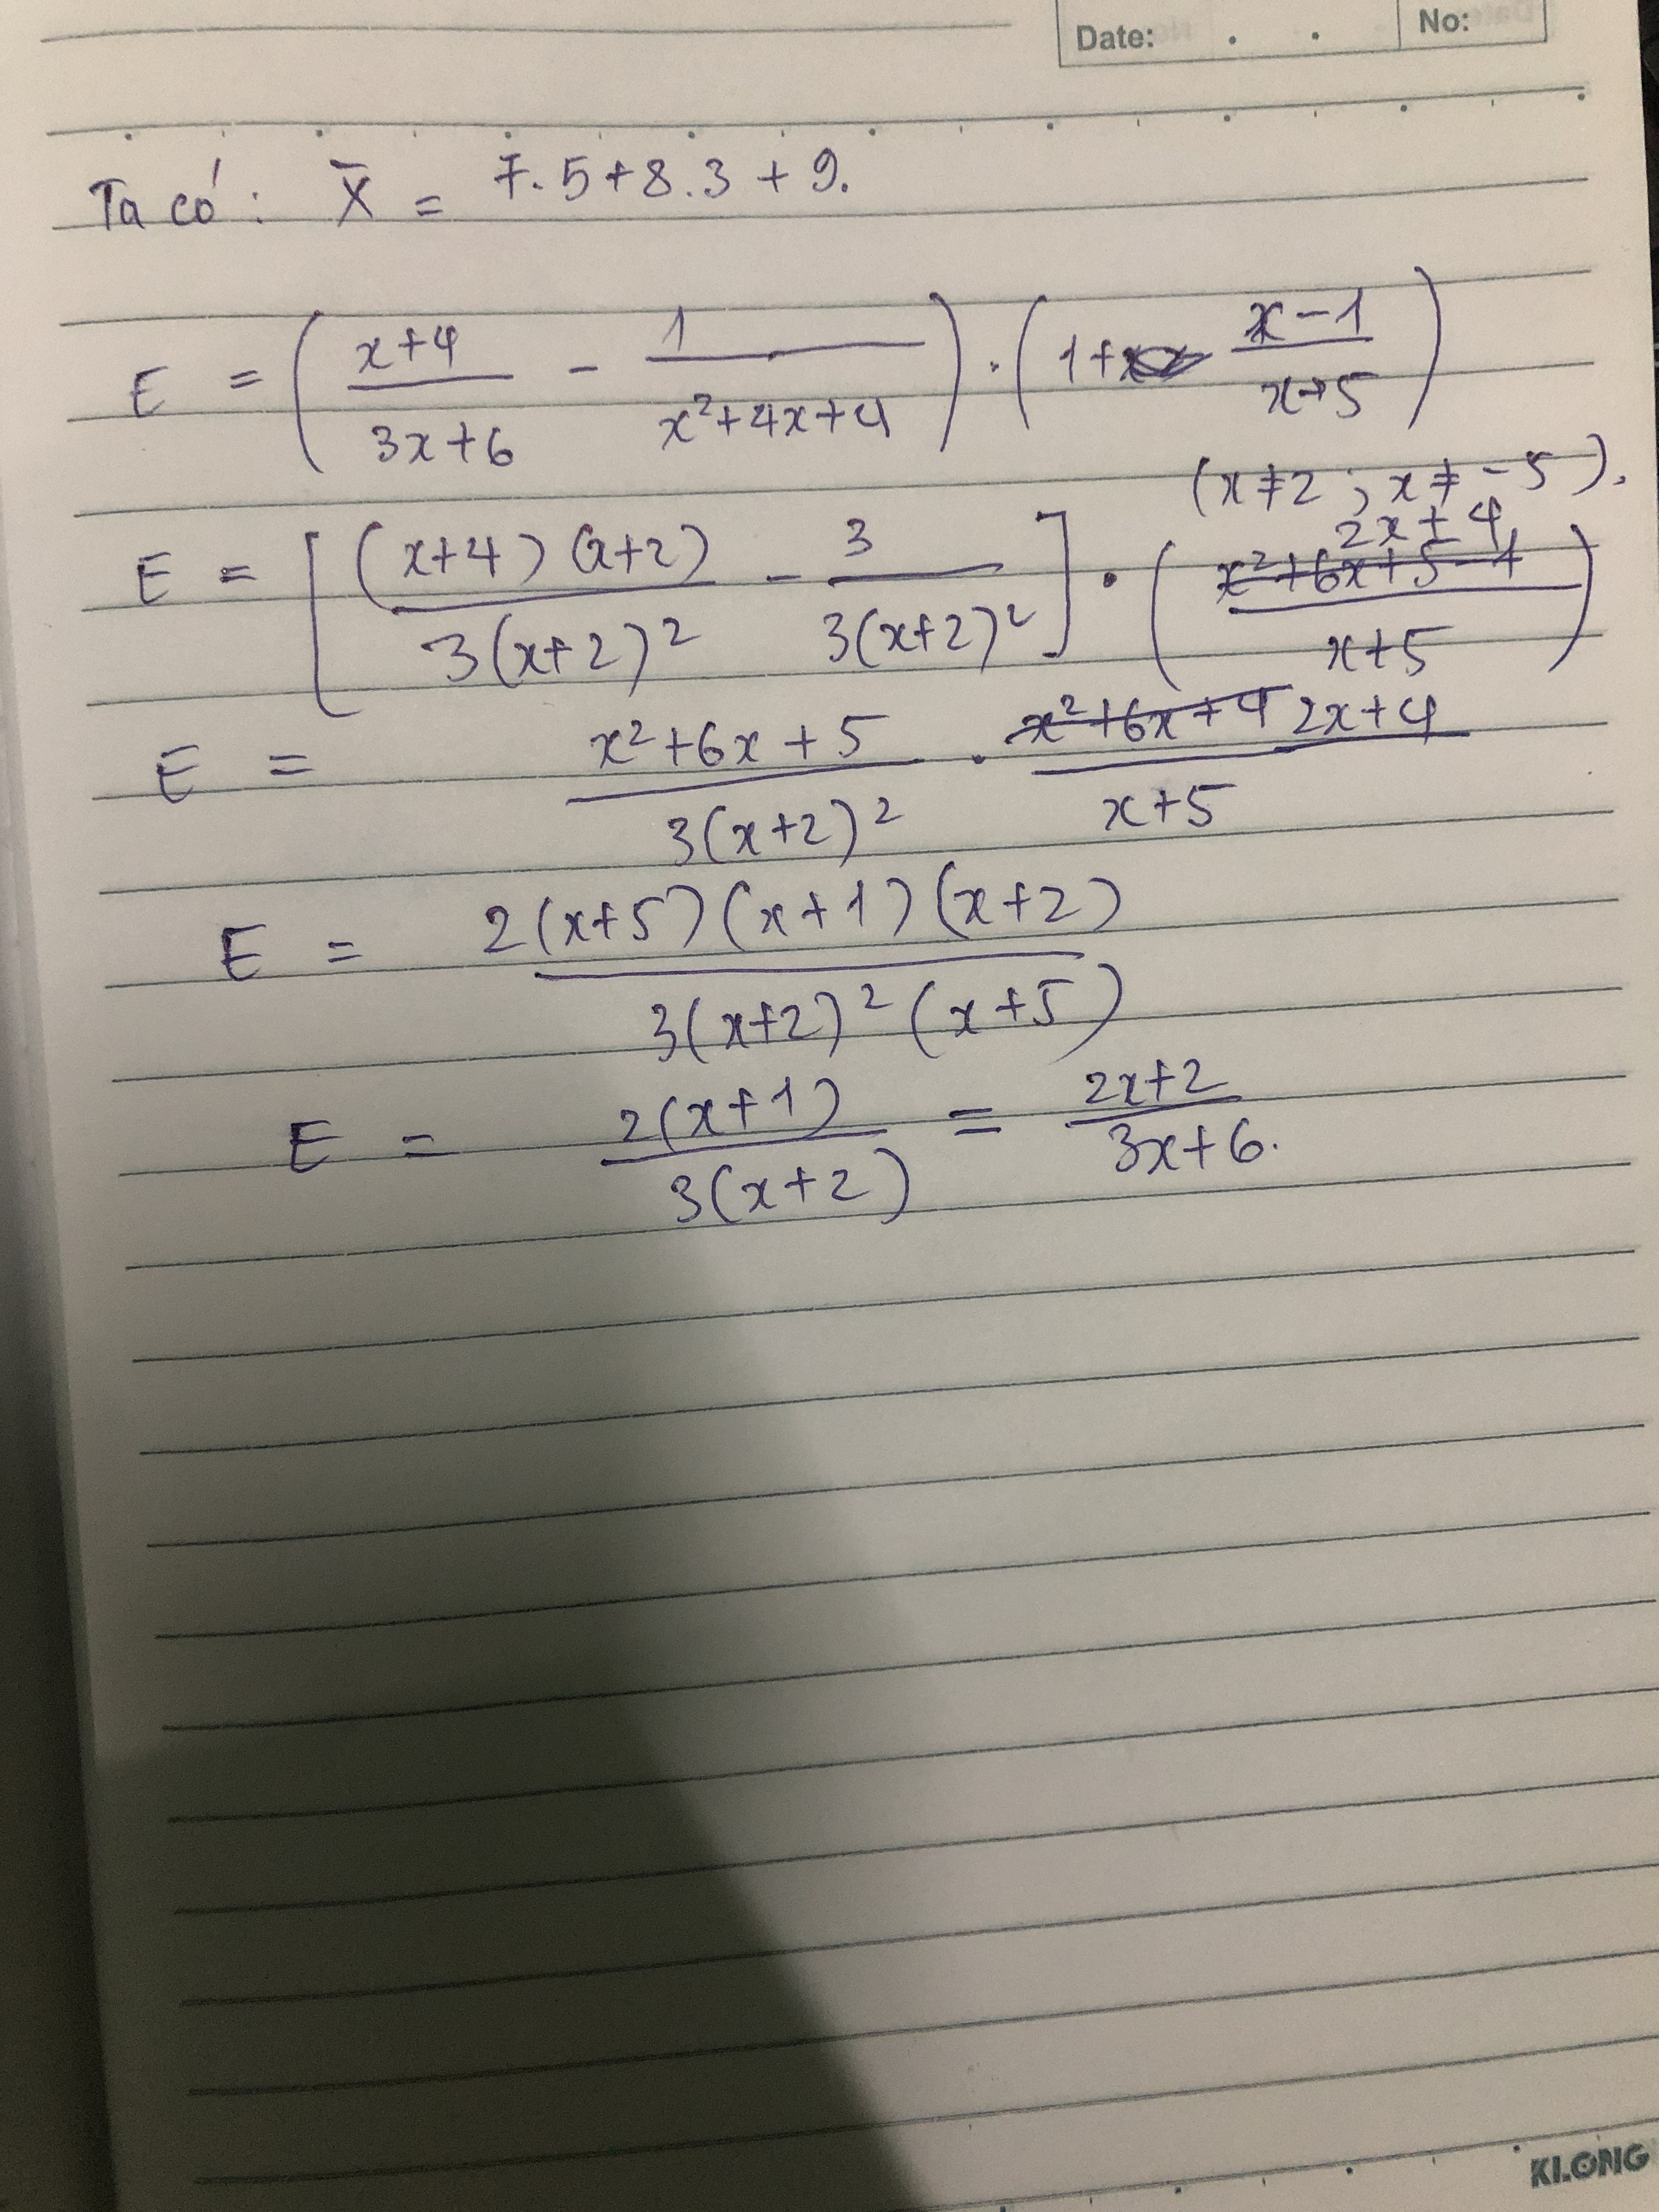 Date: . . No:
Ta có: X̄ = 7.5+8.3+9.
E = ( (x+4)/(3x+6) - 1/(x²+4x+4) ) . ( 1+ (x-1)/(x+5) )
(x≠2; x≠-5).
E = [ (x+4)(x+2)/3(x+2)² - 3/3(x+2)² ] . ( 2x+4 / x+5 )
E = (x²+6x+5)/3(x+2)² . (2x+4)/(x+5)
E = 2(x+5)(x+1)(x+2) / 3(x+2)²(x+5)
E = 2(x+1)/3(x+2) = 2x+2/3x+6.
KLONG